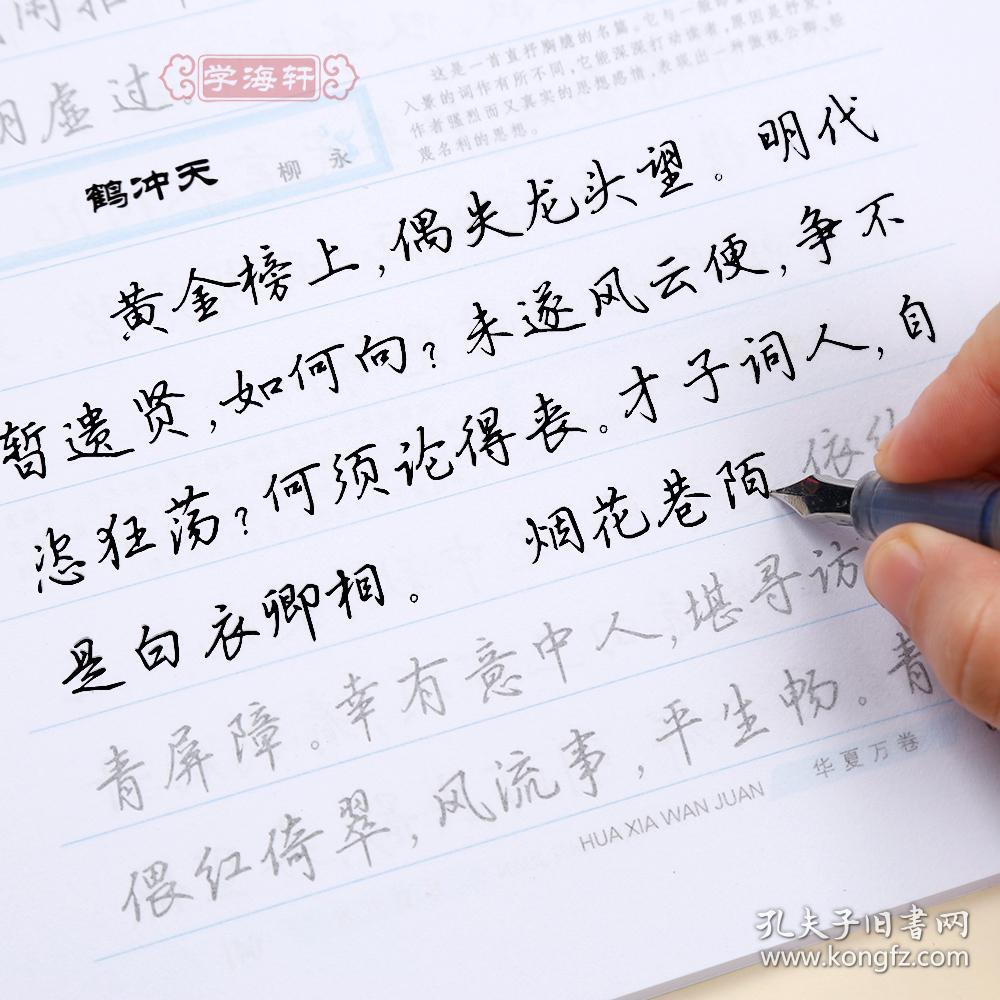 学海轩
明虚过。
这是一首直抒胸臆的名篇。它与一般即
入景的词作有所不同,它能深深打动读者,原因是抒发
作者强烈而又真实的思想感情,表现出一种傲视公卿、
蔑名利的思想。
鹤冲天
柳永
黄金榜上,偶失龙头望。明代
暂遗贤,如何向?未遂风云便,争不
恣狂荡?何须论得丧。才子词人,自
是白衣卿相。 烟花巷陌 依
青屏障。幸有意中人,堪寻访
偎红倚翠,风流事,平生畅。青
华夏万卷
HUA XIA WAN JUAN
孔夫子旧书网
www.kongfz.com